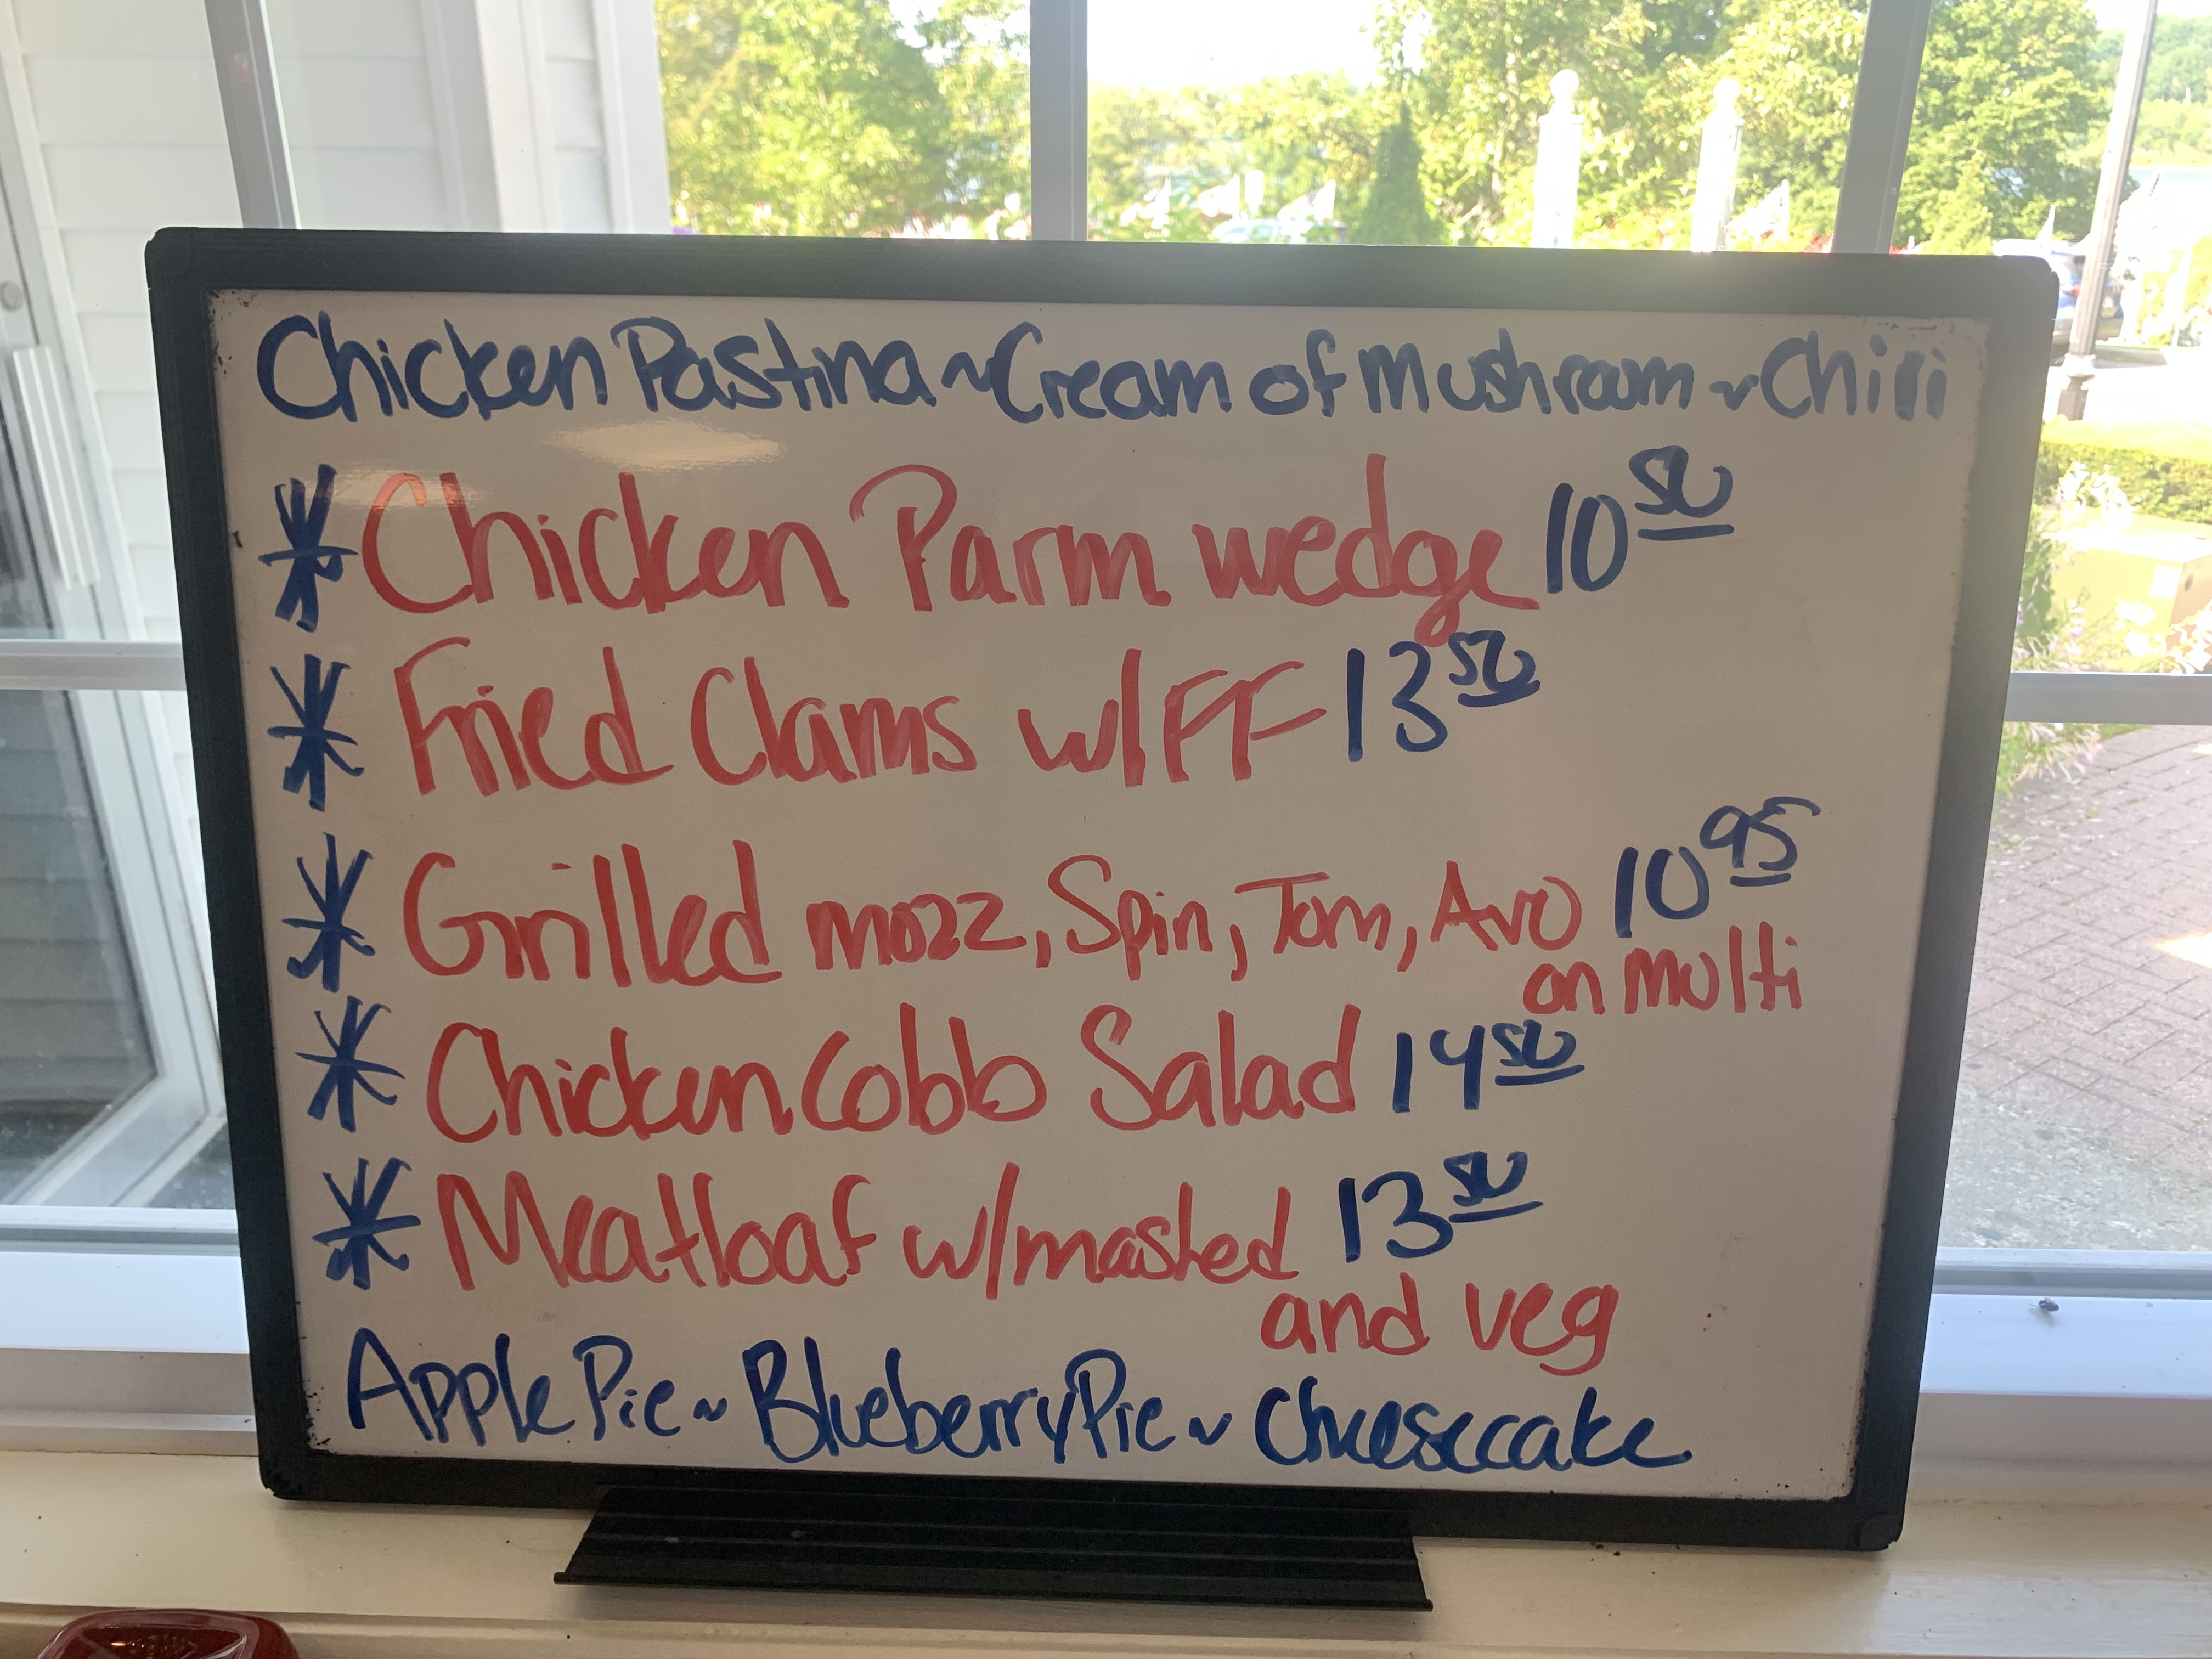 Chicken Pastina ~ Cream of Mushroom ~ Chili
* Chicken Parm wedge 10 50
* Fried Clams w/FF 13 50
* Grilled mozz, Spin, Tom, Avo 10 95
on multi
* Chicken Cobb Salad 14 50
* Meatloaf w/mashed 13 50
and veg
Apple Pie ~ Blueberry Pie ~ Cheesecake